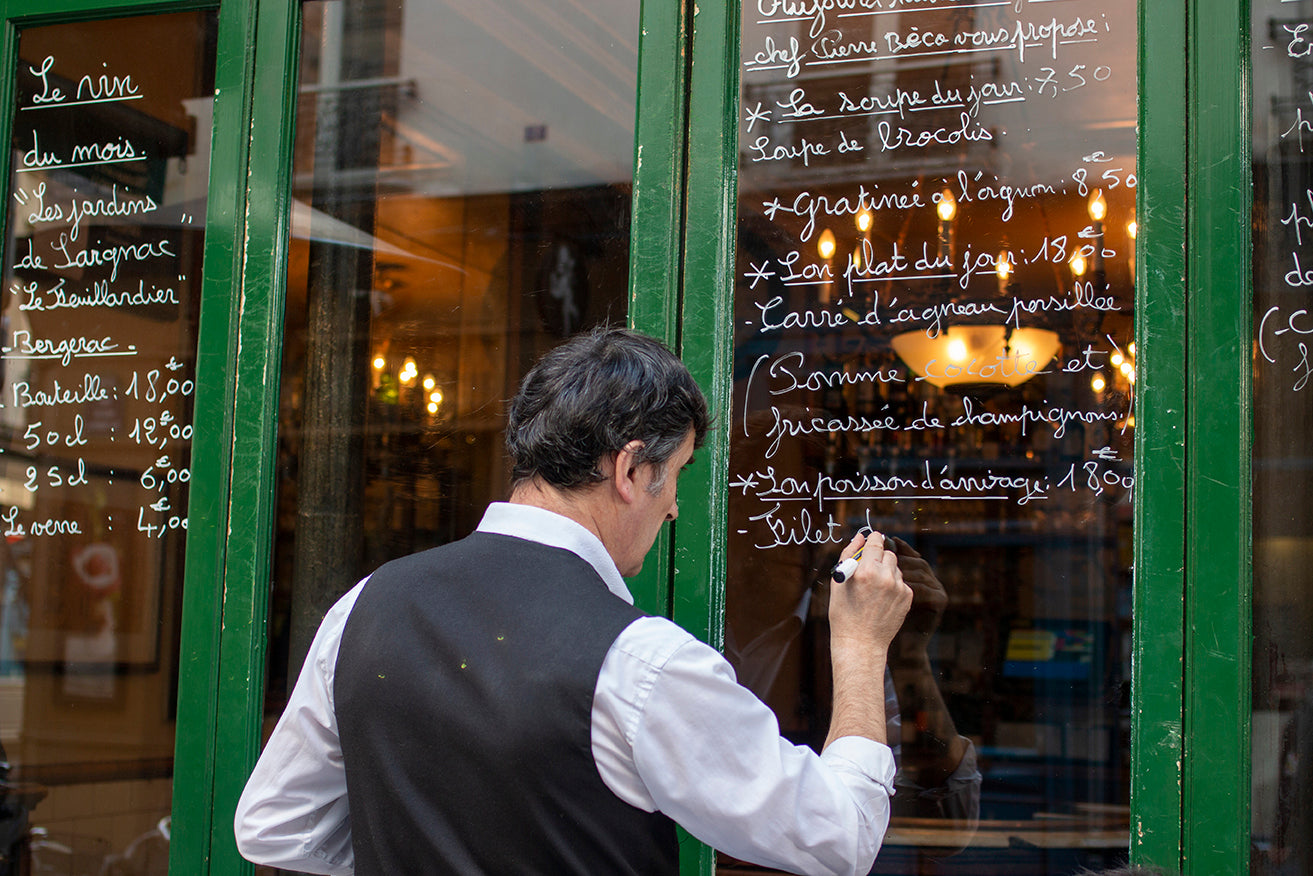 Le vin
du mois.
"Les jardins
de Sarignac "
"Le Feuillardier"
-Bergerac-
Bouteille: 18,00 €
50cl : 12,00 €
25cl : 6,00 €
Le verre : 4,00 €
Aujourd'hui
-chef Pierre Béco vous propose:
* La soupe du jour: 7,50
Soupe de brocolis.
* Gratinée à l'oignon: 8,50 €
* Son plat du jour: 18,00 €
- Carré d'agneau persillée
(Pomme cocotte et
fricassée de champignons.)
* Son poisson d'arrivage: 18,00 €
- Filet d